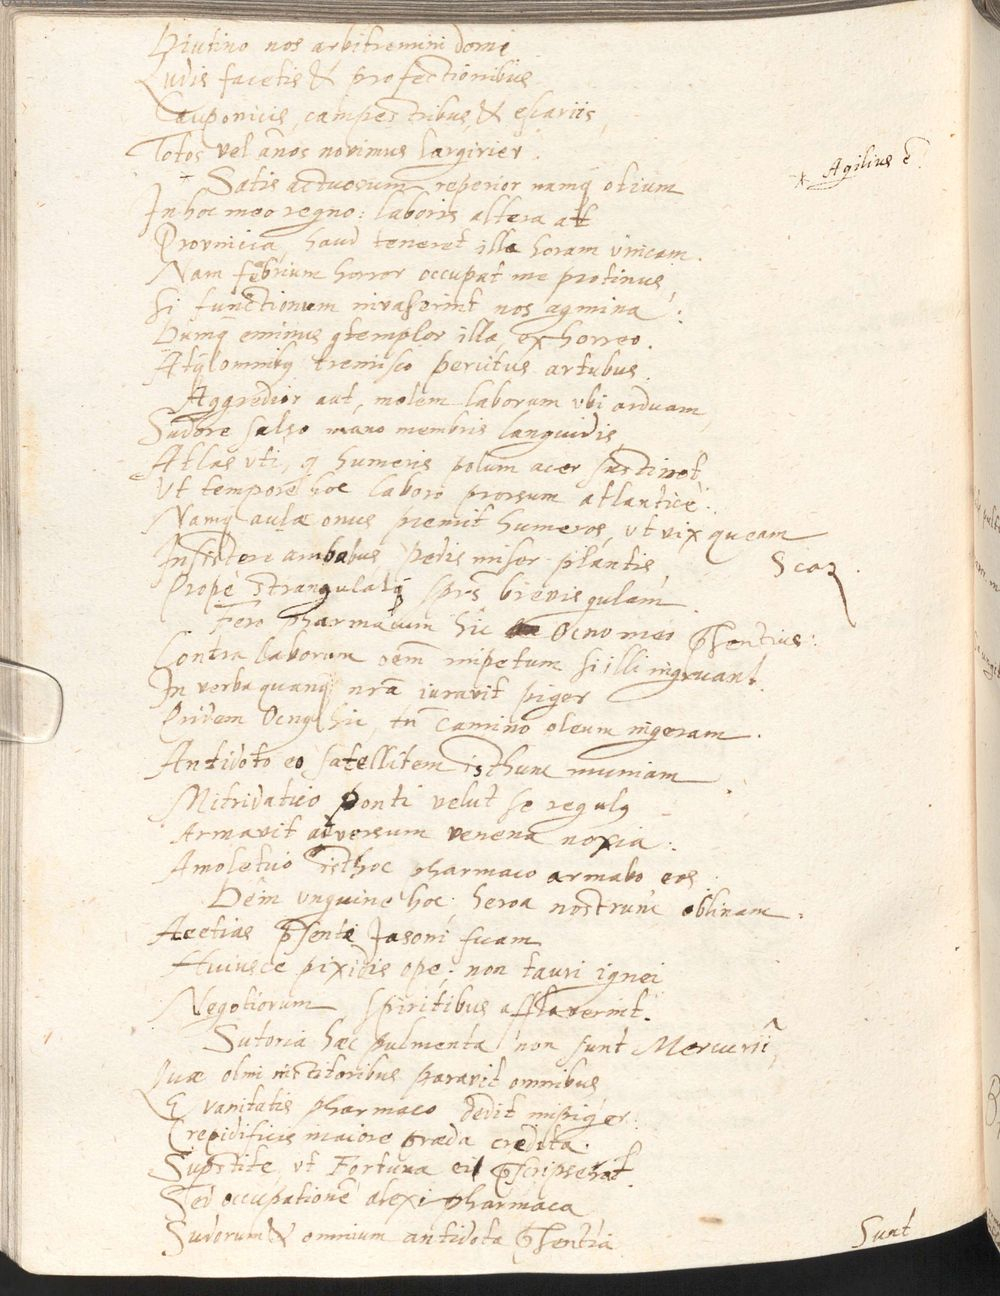 Diutino nos arbitremini domi
Ludis facetis & profectionibus
Cauponiciis, campestribus, & escariis,
Totos vel años novimus largirier.
* Agilius ē.
* Satis actuosum reperior namq otium
In hoc meo regno: laboris altera at
Provincia, haud teneret illa horam vnicam.
Nam febrium horror occupat me protinus,
Si functionum invaserint nos agmina:
Dumq eminus contemplor illa, exhorreo.
Atq omnibq tremisco percitus artubus.
Aggredior aut, molem laborum vbi arduam,
Sudore salso mano membris languidis,
Atlas vti, q humeris polum acer sustinet,
Vt tempore hoc laboro prorsum atlanticè:
Namq aulæ onus premit humeros, vt vix queam
Insistere ambabus pedis miser plantis Scaz.
Propè strangulatq sprs brevis gulam.
Fero pharmacum hic Ocno meo pr̄sentius:
Contra laborum oēm impetum si illi ingruant.
In verba quanq nrā iuravit piger
Pridem Ocnq hic, tn̄ camino oleum ingeram.
Antidoto eo satellitem isthunc muniam
Mitridatico ponti velut se regulq
Armavit adversum venena noxia:
Amoletico isthoc pharmaco armabo eos
Dein vnguine hoc heroa nostrum oblinam.
Aeetias pr̄sente Jasoni suam
Huiusce pixidis ope: non tauri ignei
Negotiorum spiritibus afflaverint.
Sutoria hæc pulmenta non sunt Mercurii,
Quæ olim institoribus paravit omnibus
E vanitatis pharmaco dedit impiger
Crepidificis maiore præda credita.
Superstite, vt Fortuna ei pr̄scripserat.
Sed occupationē alexipharmaca
Sudorum & omnium antidota pr̄sentia
Sunt